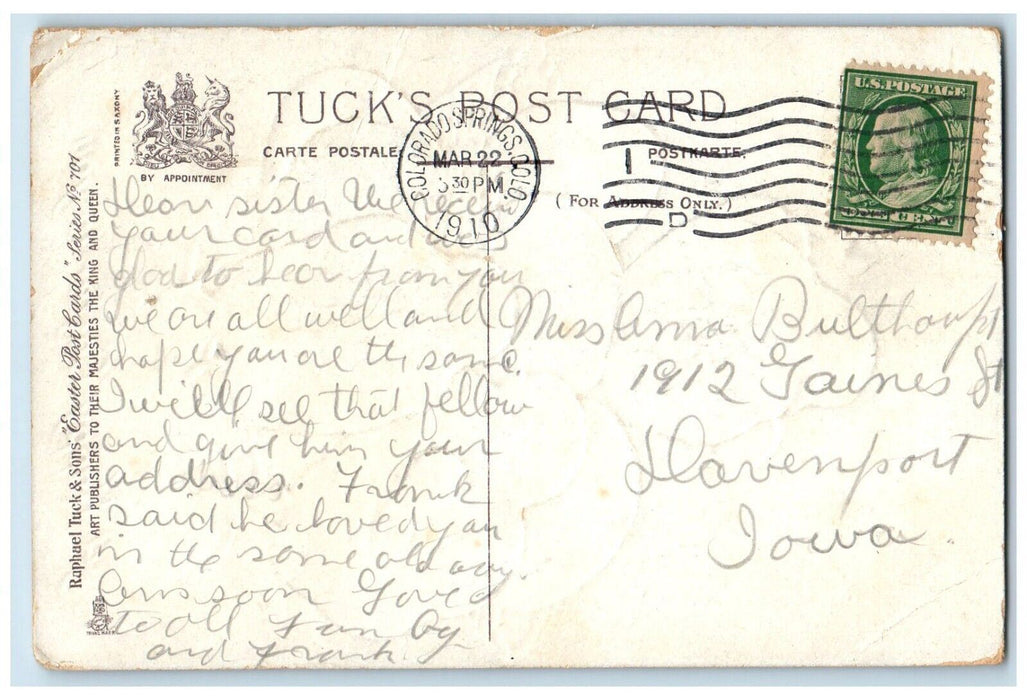 TUCK'S POST CARD
CARTE POSTALE
POSTKARTE.
(FOR ADDRESS ONLY.)
PRINTED IN SAXONY
BY APPOINTMENT
COLORADO SPRINGS, COLO.
MAR 22
30 PM
1910
1
D
U.S. POSTAGE
Raphael Tuck & Sons' "Easter Post Cards" Series No 701
ART PUBLISHERS TO THEIR MAJESTIES THE KING AND QUEEN.
TRADE MARK
Dear sister We
your card and
glad to hear from you
we are all well and
hope you are the same.
I will see that fellow
and give him your
address. Frank
said he loved you
in the same old way.
Ans soon Love
to all from
and Frank.
Miss Anna Bulthaupt
1912 Gaines St
Davenport
Iowa